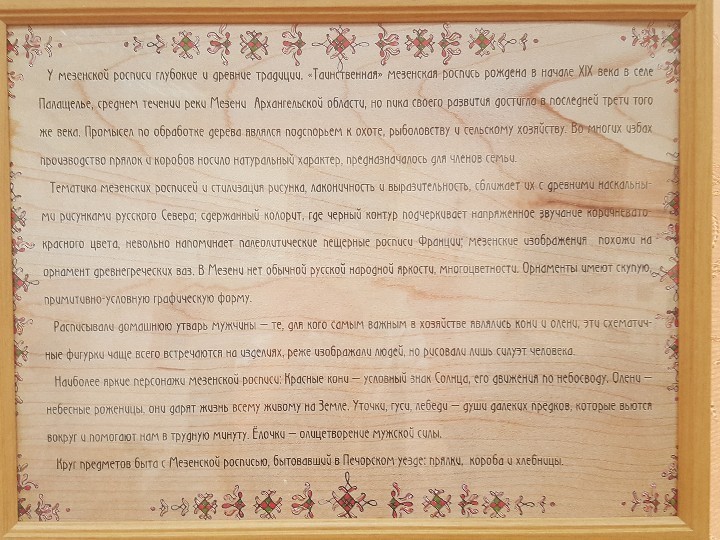 У мезенской росписи глубокие и древние традиции. «Таинственная» мезенская роспись рождена в начале XIX века в селе
Палащелье, среднем течении реки Мезени Архангельской области, но пика своего развития достигла в последней трети того
же века. Промысел по обработке дерева являлся подспорьем к охоте, рыболовству и сельскому хозяйству. Во многих избах
производство прялок и коробов носило натуральный характер, предназначалось для членов семьи.
Тематика мезенских росписей и стилизация рисунка, лаконичность и выразительность, сближает их с древними наскальны-
ми рисунками русского Севера; сдержанный колорит, где черный контур подчеркивает напряженное звучание коричневато-
красного цвета, невольно напоминает палеолитические пещерные росписи Франции; мезенские изображения похожи на
орнамент древнегреческих ваз. В Мезени нет обычной русской народной яркости, многоцветности. Орнаменты имеют скупую,
примитивно-условную графическую форму.
Расписывали домашнюю утварь мужчины — те, для кого самым важным в хозяйстве являлись кони и олени, эти схематич-
ные фигурки чаще всего встречаются на изделиях, реже изображали людей, но рисовали лишь силуэт человека.
Наиболее яркие персонажи мезенской росписи: Красные кони — условный знак Солнца, его движения по небосводу. Олени —
небесные роженицы, они дарят жизнь всему живому на Земле. Уточки, гуси, лебеди — души далеких предков, которые вьются
вокруг и помогают нам в трудную минуту. Ёлочки — олицетворение мужской силы.
Круг предметов быта с Мезенской росписью, бытовавший в Печорском уезде: прялки, короба и хлебницы.